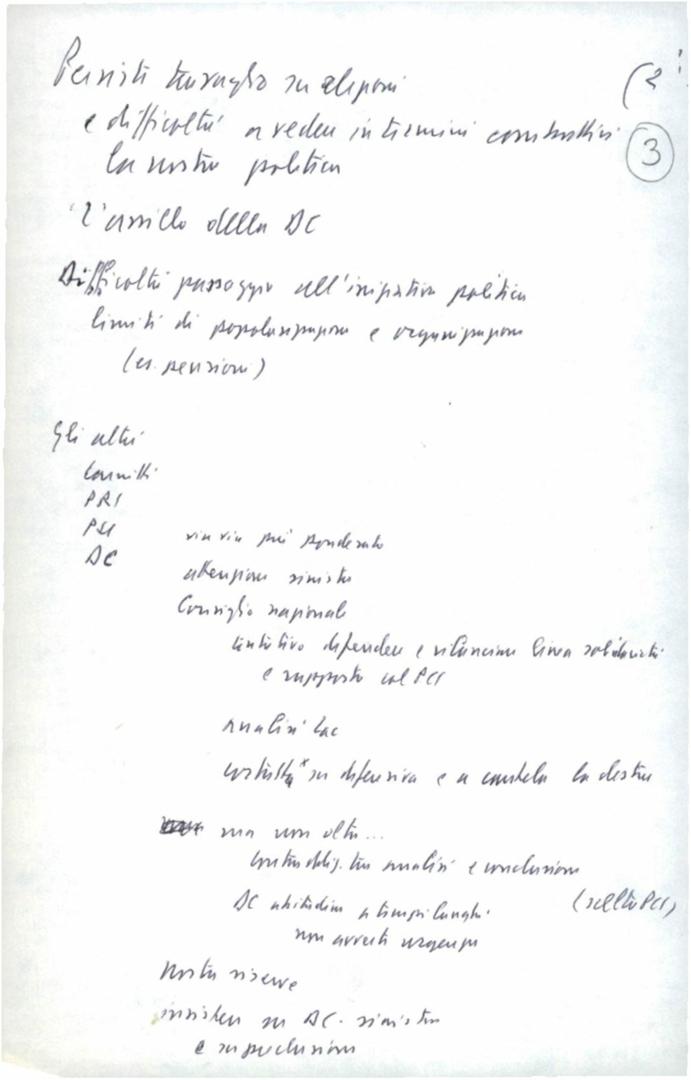 (2
3
e difficoltà a vedere in termini combattivi
la nostra politica
L'assillo della DC
Difficoltà passaggio all'iniziativa politica
limiti di popolarizzazione e organizzazione
(es. pensioni)
Gli altri
PRI
PSI
DC
via via più ponderato
attenzione sinistra
Consiglio nazionale
tentativo difendere e rilanciare linea solidarietà
e rapporto col PCI
analisi
costretta su difensiva e a cautela la destra
ma non oltre...
contraddiz. tra analisi e conclusioni
DC abitudine a tempi lunghi (scelta PCI)
non avverte urgenza
Nostre riserve
insistere su DC - sinistra
e su preclusioni